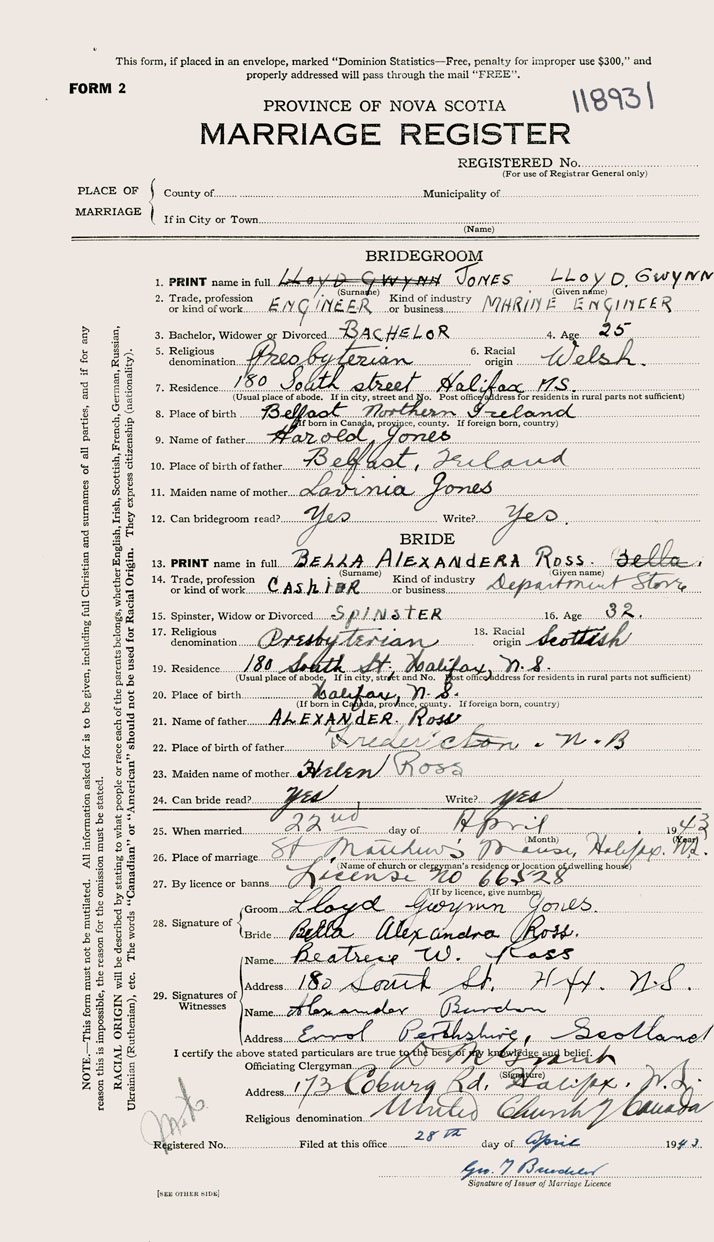 This form, if placed in an envelope, marked "Dominion Statistics—Free, penalty for improper use $300," and
properly addressed will pass through the mail "FREE".
FORM 2
118931
PROVINCE OF NOVA SCOTIA
MARRIAGE REGISTER
REGISTERED No.
(For use of Registrar General only)
PLACE OF MARRIAGE
County of Municipality of
If in City or Town
(Name)
BRIDEGROOM
1. PRINT name in full LLOYD GWYNN JONES LLOYD, GWYNN
(Surname) (Given name)
2. Trade, profession or kind of work ENGINEER Kind of industry or business MARINE ENGINEER
3. Bachelor, Widower or Divorced BACHELOR 4. Age 25
5. Religious denomination Presbyterian 6. Racial origin Welsh.
7. Residence 180 South street Halifax N.S.
(Usual place of abode. If in city, street and No. Post office address for residents in rural parts not sufficient)
8. Place of birth Belfast Northern Ireland
(If born in Canada, province, county. If foreign born, country)
9. Name of father Harold Jones
10. Place of birth of father Belfast, Ireland
11. Maiden name of mother Lavinia Jones
12. Can bridegroom read? Yes Write? Yes.
BRIDE
13. PRINT name in full BELLA ALEXANDERA ROSS. Bella.
(Surname) (Given name)
14. Trade, profession or kind of work CASHIER Kind of industry or business Department Store
15. Spinster, Widow or Divorced SPINSTER 16. Age 32.
17. Religious denomination Presbyterian 18. Racial origin Scottish
19. Residence 180 South St. Halifax, N.S.
(Usual place of abode. If in city, street and No. Post office address for residents in rural parts not sufficient)
20. Place of birth Halifax, N.S.
(If born in Canada, province, county. If foreign born, country)
21. Name of father ALEXANDER. Ross
22. Place of birth of father Fredericton. N.B
23. Maiden name of mother Helen Ross
24. Can bride read? Yes Write? yes
25. When married 22nd day of April 1943
(Month) (Year)
26. Place of marriage St Matthew's Manse, Halifax. N.S.
(Name of church or clergyman's residence or location of dwelling house)
27. By licence or banns License no 66528
(If by licence, give number)
28. Signature of Groom Lloyd Gwynn Jones.
Bride Bella Alexandra Ross.
29. Signatures of Witnesses
Name Beatrice W. Ross
Address 180 South St. Hfx. N.S.
Name Alexander Burdon
Address Errol Perthshire, Scotland
I certify the above stated particulars are true to the best of my knowledge and belief.
Officiating Clergyman Grant
(Signature)
Address 173 Coburg Rd. Halifax. N.S.
Religious denomination United Church of Canada
Registered No. Filed at this office 28th day of April 1943
Geo. T
Signature of Issuer of Marriage Licence
[SEE OTHER SIDE]
NOTE.—This form must not be mutilated. All information asked for is to be given, including full Christian and surnames of all parties, and if for any
reason this is impossible, the reason for the omission must be stated.
RACIAL ORIGIN will be described by stating to what people or race each of the parents belongs, whether English, Irish, Scottish, French, German, Russian,
Ukrainian (Ruthenian), etc. The words "Canadian" or "American" should not be used for Racial Origin. They express citizenship (nationality).